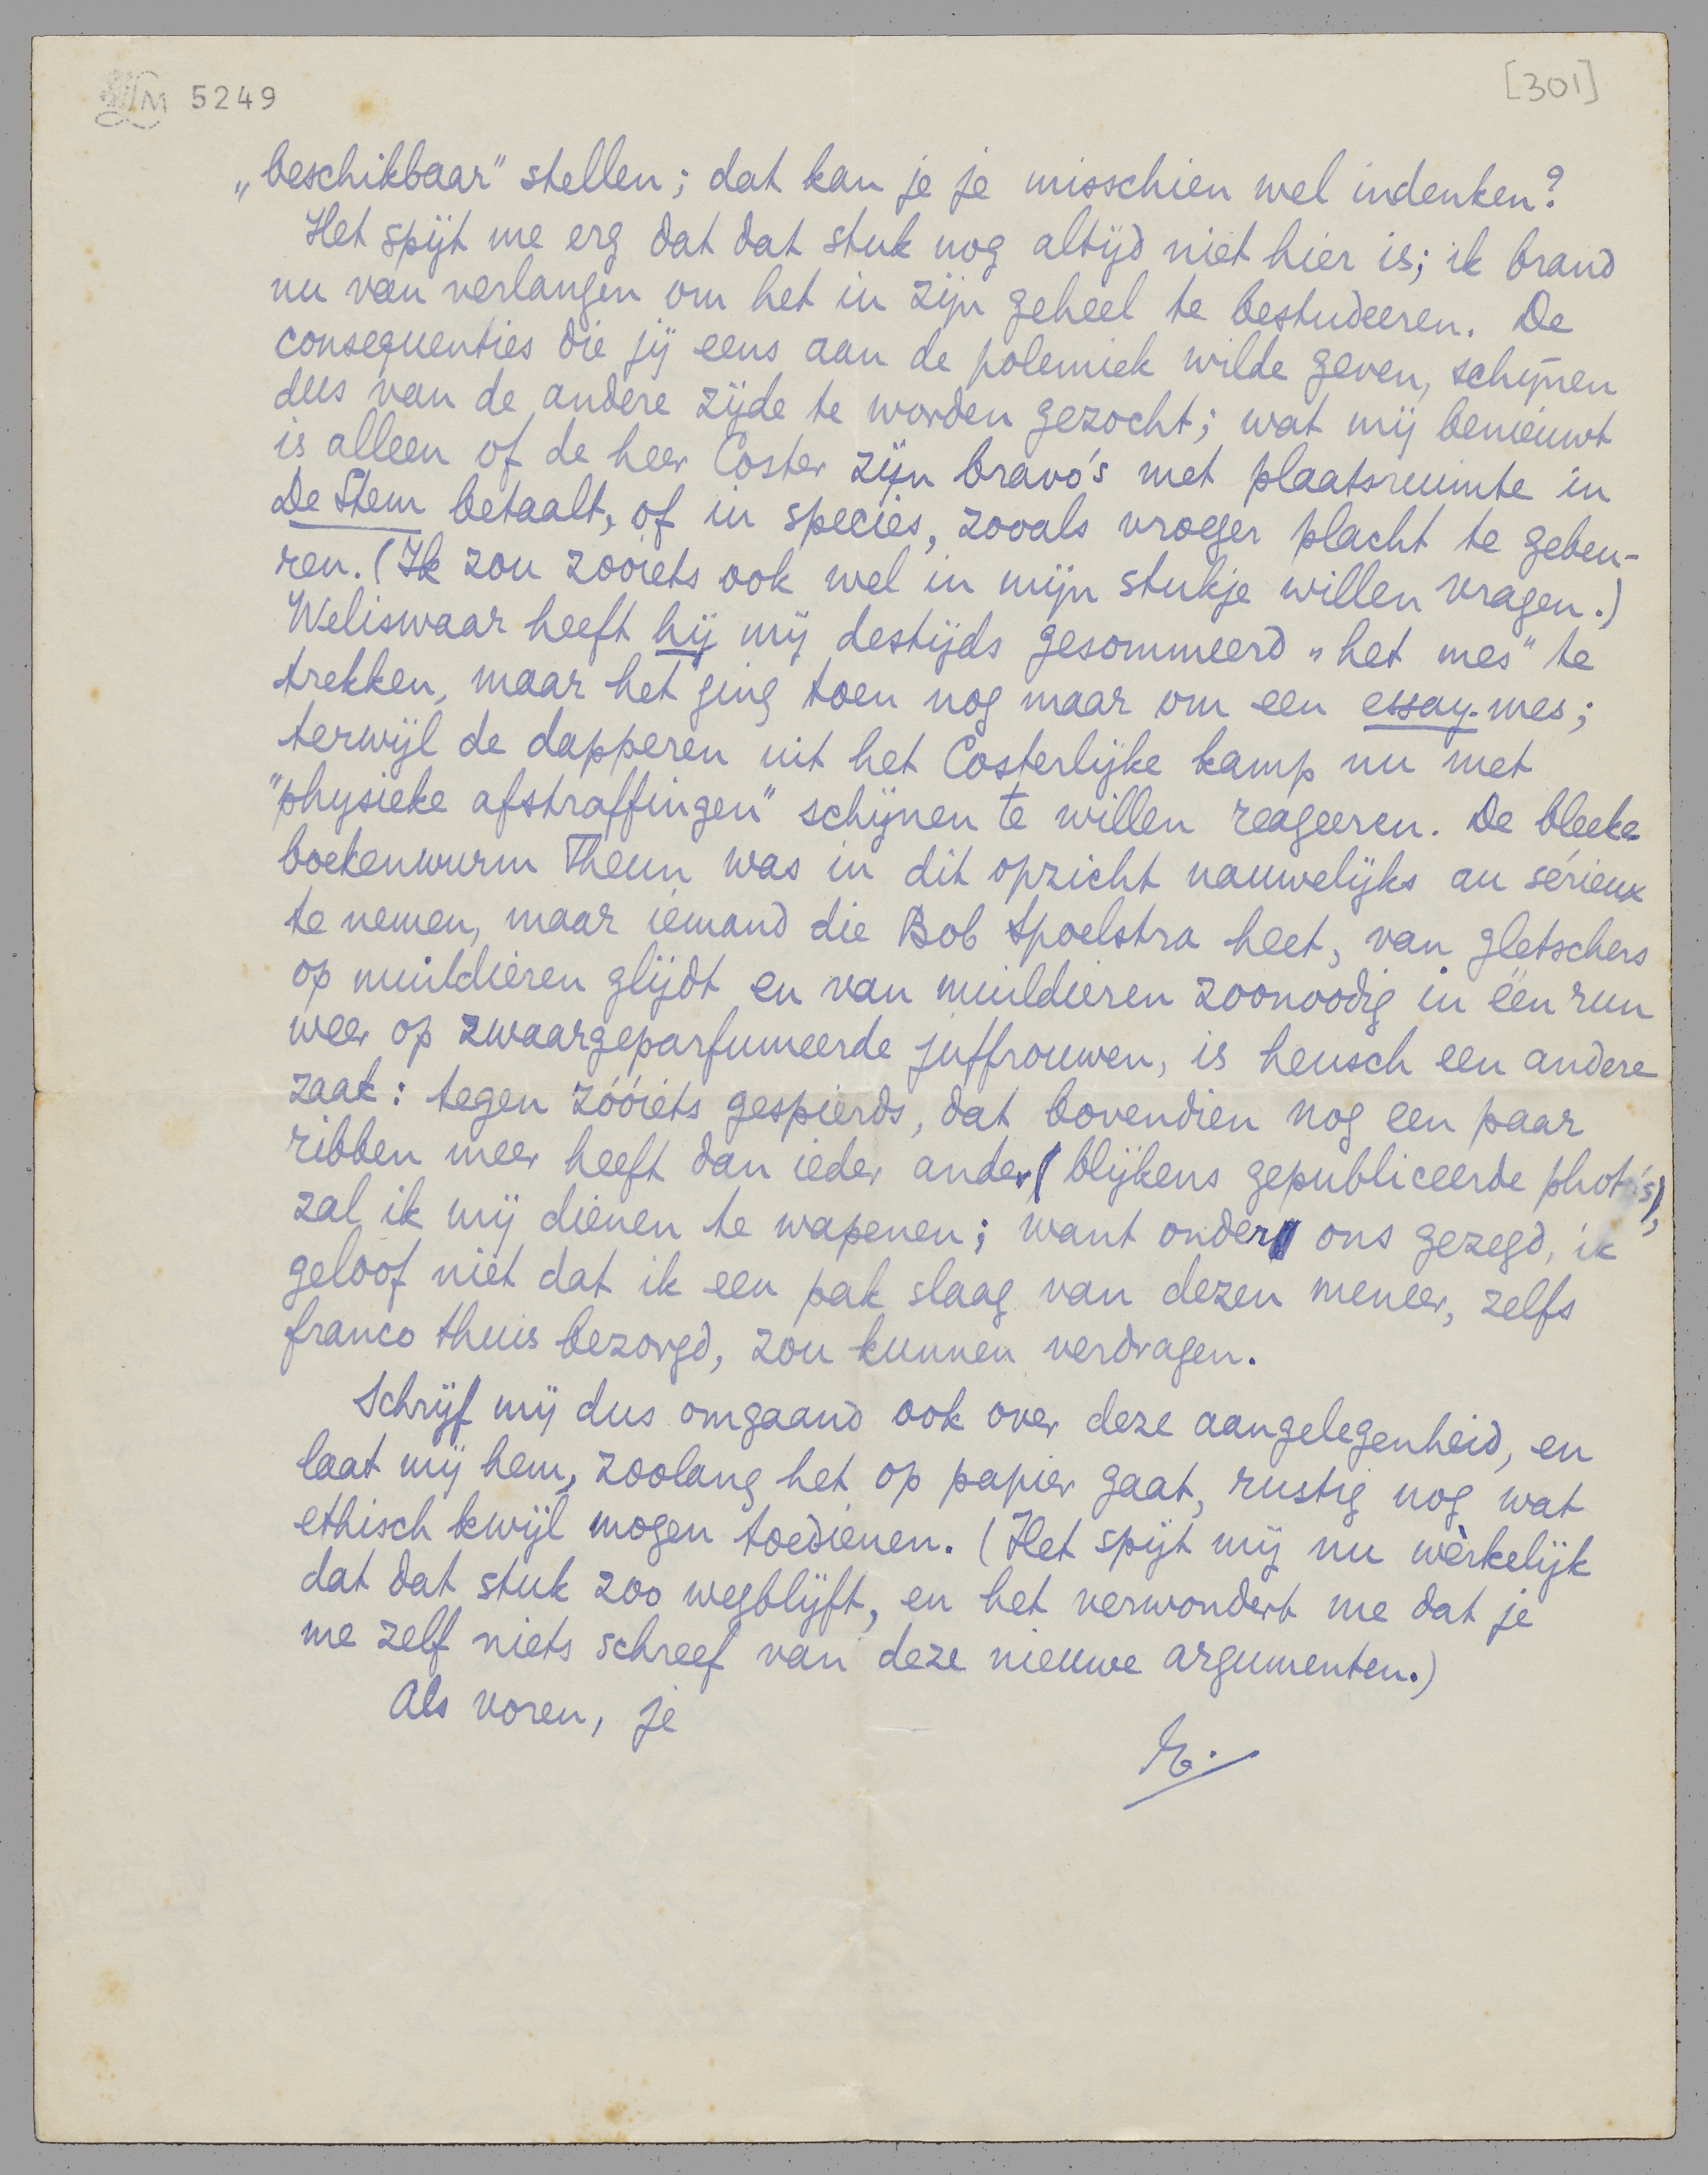 LM 5249
[301]
„beschikbaar" stellen; dat kan je je misschien wel indenken?
Het spijt me erg dat dat stuk nog altijd niet hier is; ik brand
nu van verlangen om het in zijn geheel te bestudeeren. De
consequenties die jij eens aan de polemiek wilde geven, schijnen
dus van de andere zijde te worden gezocht; wat mij benieuwt
is alleen of de heer Coster zijn bravo's met plaatsruimte in
De Stem betaalt, of in species, zooals vroeger placht te gebeu-
ren. (Ik zou zooiets ook wel in mijn stukje willen vragen.)
Weliswaar heeft hij mij destijds gesommeerd „het mes" te
trekken, maar het ging toen nog maar om een essay-mes;
terwijl de dapperen uit het Costerlijke kamp nu met
"physieke afstraffingen" schijnen te willen reageeren. De bleeke
boekenwurm Theun was in dit opzicht nauwelijks au sérieux
te nemen, maar iemand die Bob Spoelstra heet, van gletschers
op muildieren glijdt en van muildieren zoonoodig in één run
weer op zwaargeparfumeerde juffrouwen, is heusch een andere
zaak: tegen zóóiets gespierds, dat bovendien nog een paar
ribben meer heeft dan ieder ander (blijkens gepubliceerde photo's),
zal ik mij dienen te wapenen; want onder ons gezegd, ik
geloof niet dat ik een pak slaag van dezen meneer, zelfs
franco thuis bezorgd, zou kunnen verdragen.
Schrijf mij dus omgaand ook over deze aangelegenheid, en
laat mij hem, zoolang het op papier gaat, rustig nog wat
ethisch kwijl mogen toedienen. (Het spijt mij nu wèrkelijk
dat dat stuk zoo wegblijft, en het verwondert me dat je
me zelf niets schreef van deze nieuwe argumenten.)
Als voren, je
E.